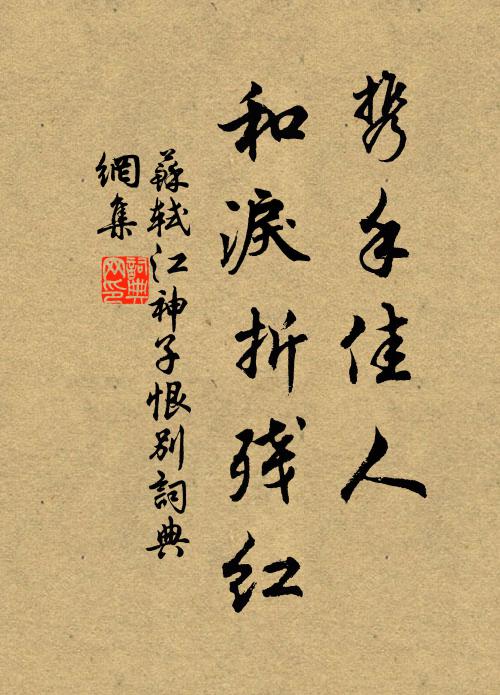 携手佳人
和淚折残红
蘇軾江神子恨别詞典
網集
詞典
网印